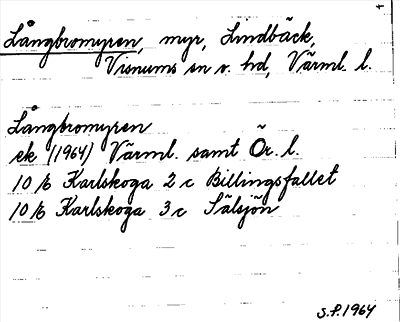 Långbromyren, myr, Lindbäck,
Visnums sn o. hd, Värml. l.
Långbromyren
ek (1964) Värml. samt Ör. l.
10 E Karlskoga 2 c Billingsfallet
10 E Karlskoga 3 c Sälsjön
S.P. 1964